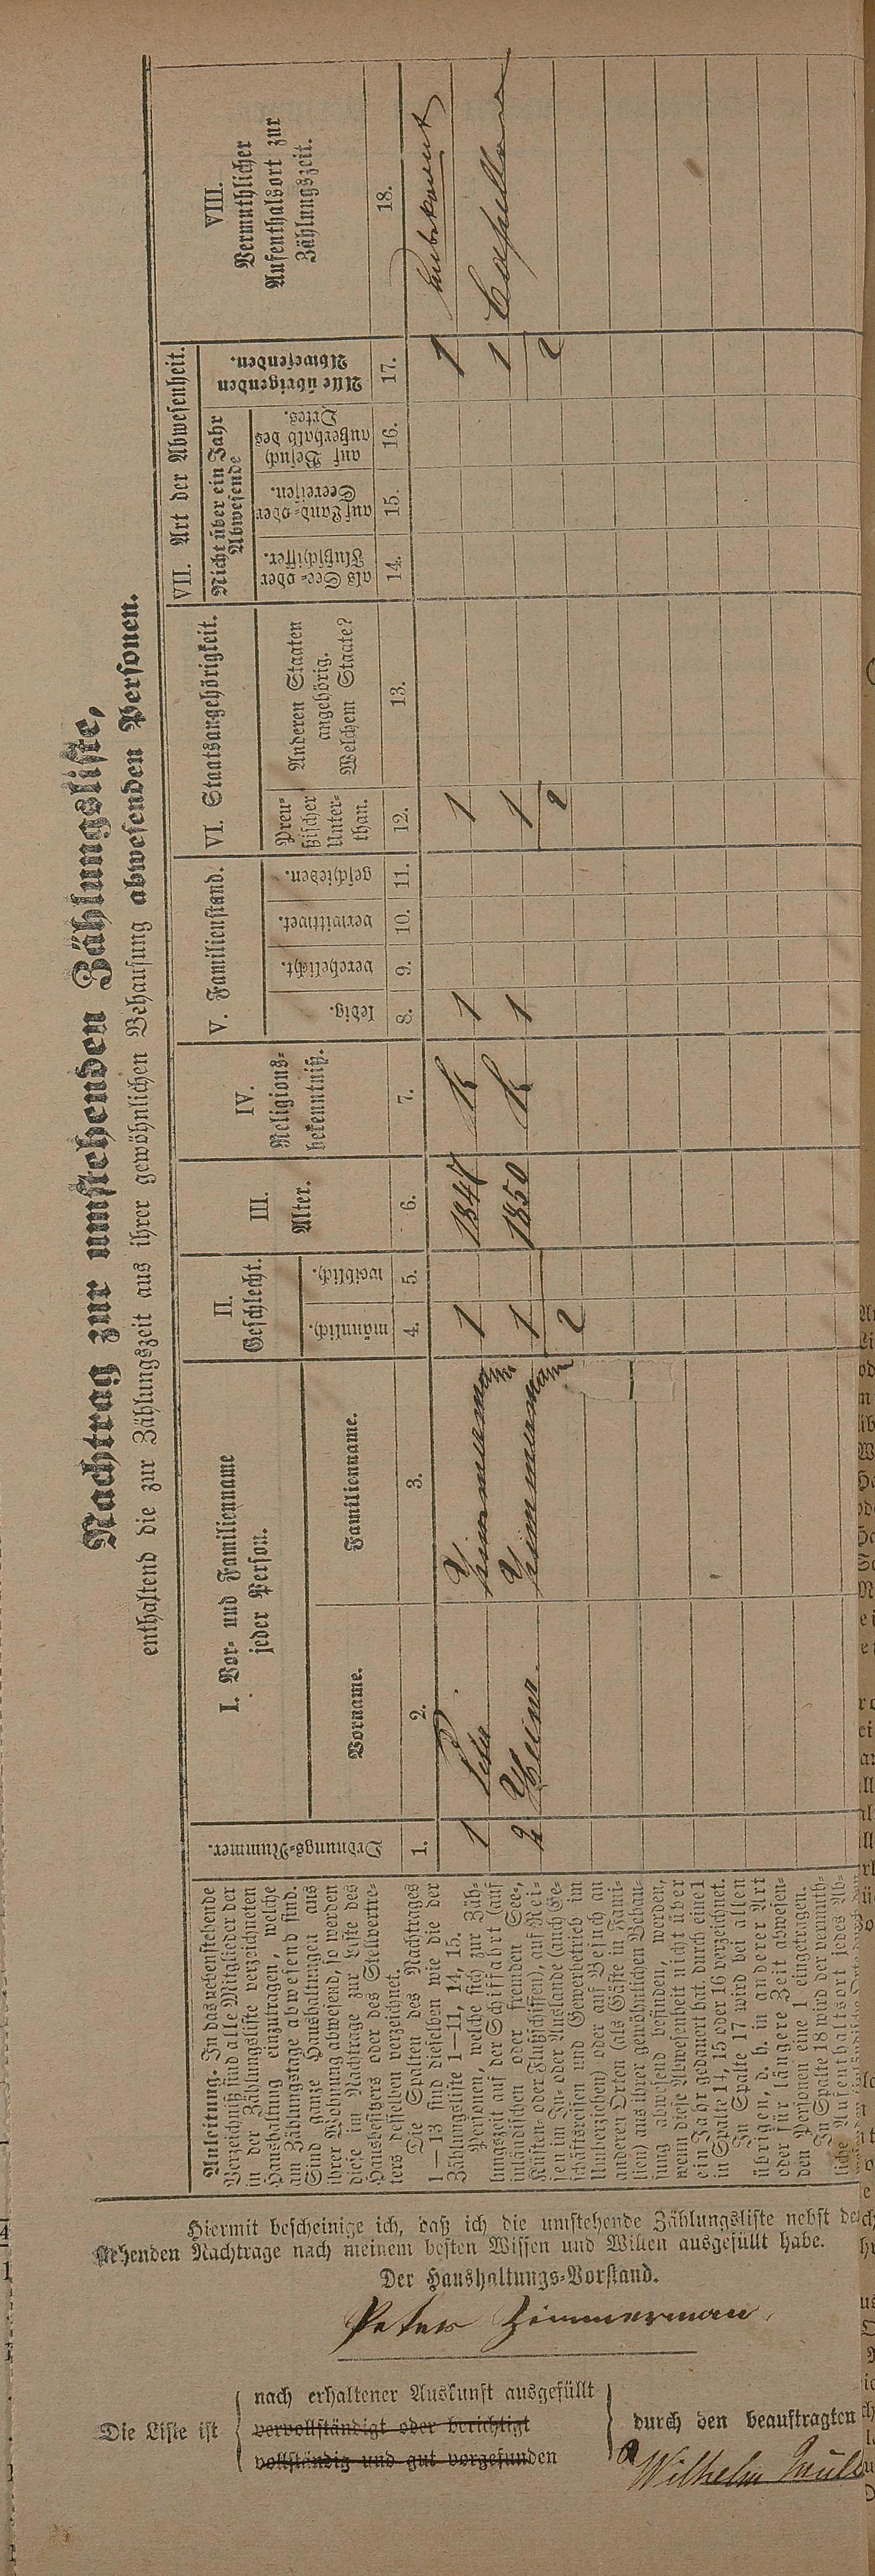 Nachtrag zur umstehenden Zählungsliste,
enthaltend die zur Zählungszeit aus ihrer gewöhnlichen Behausung abwesenden Personen.
Anleitung. In das nebenstehende
Verzeichniß sind alle Mitglieder der
in der Zählungsliste verzeichneten
Haushaltung einzutragen, welche
am Zählungstage abwesend sind.
Sind ganze Haushaltungen aus
ihrer Wohnung abwesend, so werden
diese im Nachtrage zur Liste des
Hausbesitzers oder des Stellvertre-
ters desselben verzeichnet.
Die Spalten des Nachtrages
1—13 sind dieselben wie die der
Zählungsliste 1—11, 14, 15.
Personen, welche sich zur Zäh-
lungszeit auf der Schiffahrt (auf
inländischen oder fremden See-,
Küsten- oder Flußschiffen), auf Rei-
sen im In- oder Auslande (auch Ge-
schäftsreisen und Gewerbetrieb im
Umherziehen) oder auf Besuch an
anderen Orten (als Gäste in Fami-
lien) aus ihrer gewöhnlichen Behau-
sung abwesend befinden, werden,
wenn diese Abwesenheit nicht über
ein Jahr gedauert hat, durch eine 1
in Spalte 14, 15 oder 16 verzeichnet.
In Spalte 17 wird bei allen
übrigen, d. h. in anderer Art
oder für längere Zeit abwesen-
den Personen eine 1 eingetragen.
In Spalte 18 wird der vermuth-
liche Aufenthaltsort jedes Ab-
Ordnungs-Nummer.
I. Vor- und Familienname
jeder Person.
Vorname.
Familienname.
II.
Geschlecht.
männlich.
weiblich.
III.
Alter.
IV.
Religions-
bekenntniß.
V. Familienstand.
ledig.
verehelicht.
verwittwet.
geschieden.
VI. Staatsangehörigkeit.
Preu-
ßischer
Unter-
than.
Anderen Staaten
angehörig.
Welchem Staate?
VII. Art der Abwesenheit.
Nicht über ein Jahr
Abwesende
als See- oder
Flußschiffer.
auf Land- oder
Seereisen.
auf Besuch
außerhalb des
Ortes.
Alle übrigen
Abwesenden.
VIII.
Vermuthlicher
Aufenthalsort zur
Zählungszeit.
1. 2. 3. 4. 5. 6. 7. 8. 9. 10. 11. 12. 13. 14. 15. 16. 17. 18.
1 Peter Zimmermann 1 1847 K 1 1 1 Unbekannt
2 Heinr. Zimmermann 1 1850 K 1 1 1 Capellen
2 2 2
Hiermit bescheinige ich, daß ich die umstehende Zählungsliste nebst
stehenden Nachtrage nach meinem besten Wissen und Willen ausgefüllt habe.
Der Haushaltungs-Vorstand.
Peter Zimmerman
Die Liste ist
nach erhaltener Auskunft ausgefüllt
vervollständigt oder berichtigt
vollständig und gut vorgefunden
durch den beauftragten
Wilhelm